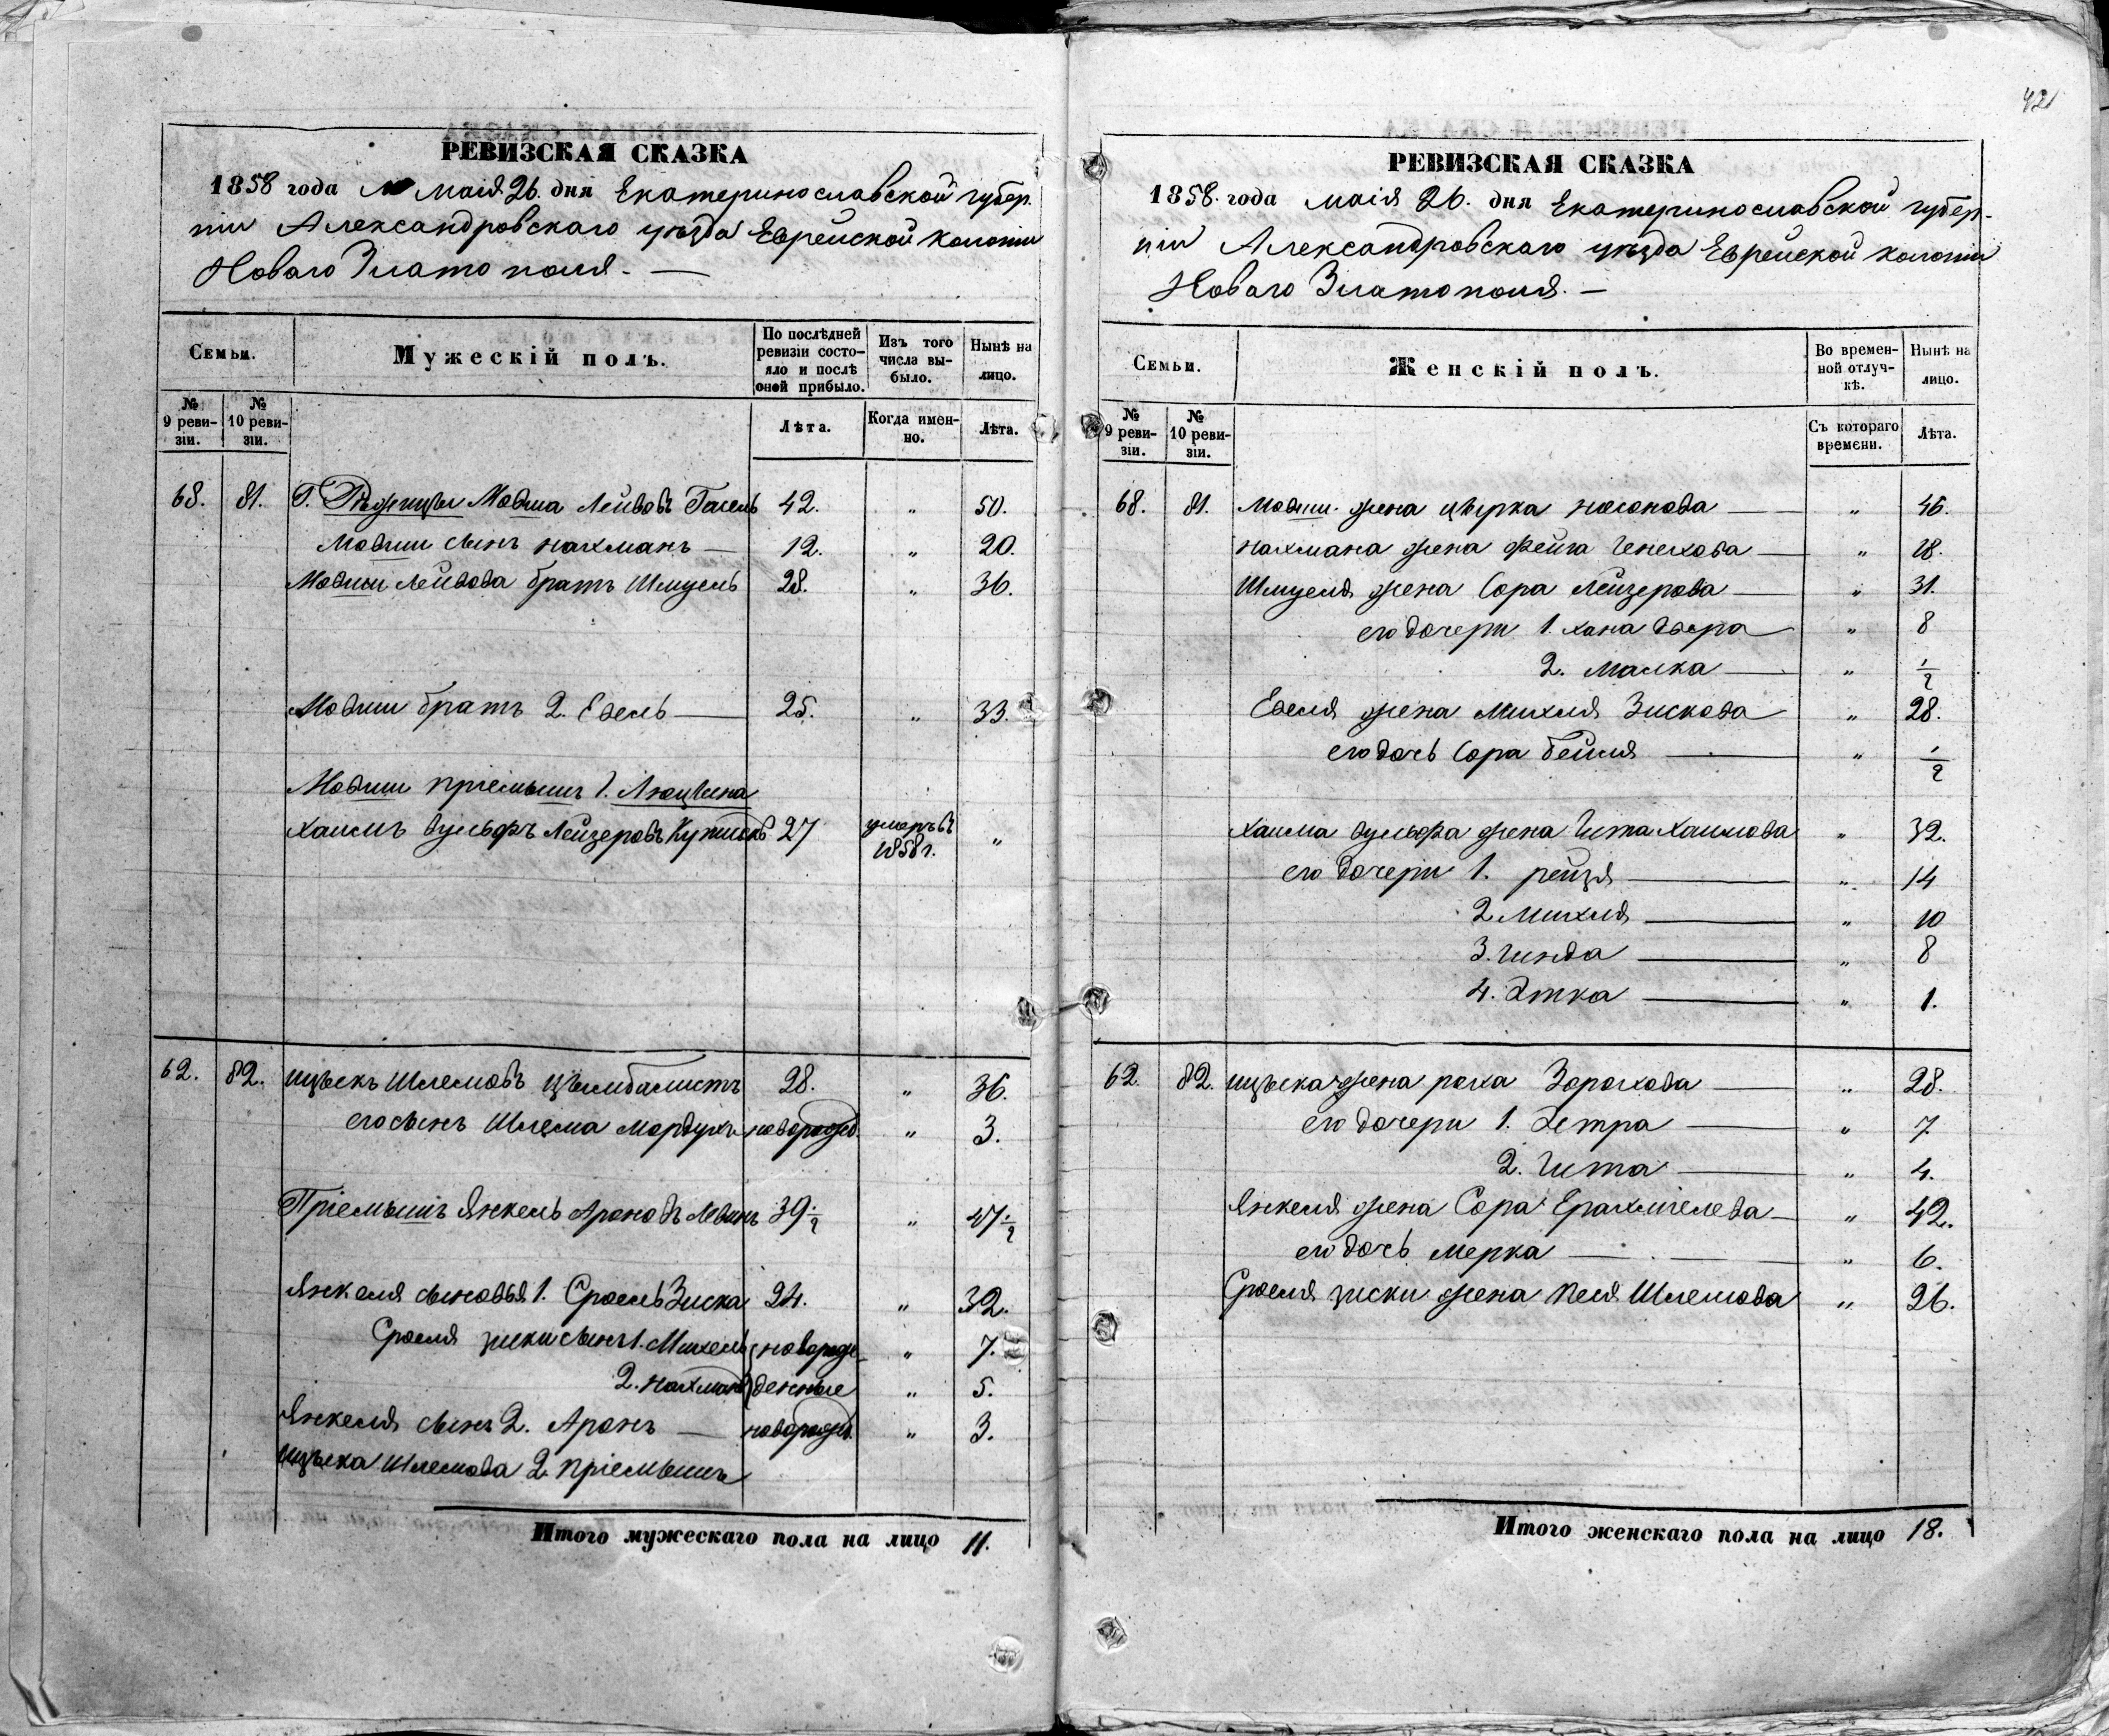 РЕВИЗСКАЯ СКАЗКА
1858 года маія 26. дня Екатеринославской губер-
ніи Александровскаго уѣзда Еврейской колоніи
Новаго Златополя. —
Семьи. Мужескій полъ. По послѣдней ревизіи состояло и послѣ оной прибыло. Изъ того числа выбыло. Нынѣ на лицо.
№ 9 ревизіи. № 10 ревизіи. Лѣта. Когда именно. Лѣта.
68. 81. Мовша Лейбовъ 42. „ 50.
Мовши сынъ Нахманъ — 12. „ 20.
Мовши Лейбова братъ Шмуель 28. „ 36.
Мовши братъ 2. Евель — 25. „ 33.
Мовши пріемышъ 1.
Хаимъ Вульфъ Лейзеровъ 27 умеръ въ 1858 г. „
62. 82. Ицькъ Шлемовъ Цымбалистъ 28. „ 36.
его сынъ Шлема Мордухъ новорожд. „ 3.
Пріемышъ Янкель Ароновъ Левинъ 39 1/2 „ 47 1/2
Янкеля сыновья 1. Сроель Зиска 24. „ 32.
Сроеля Зиски сынъ 1. Михель новорож- „ 7.
2. Нахманъ денные „ 5.
Янкеля сынъ 2. Аронъ — новорожд. „ 3.
Ицька Шлемова 2. пріемышъ
Итого мужескаго пола на лицо 11.
421
РЕВИЗСКАЯ СКАЗКА
1858. года маія 26. дня Екатеринославской губер-
ніи Александровскаго уѣзда Еврейской колоніи
Новаго Златополя. —
Семьи. Женскій полъ. Во временной отлучкѣ. Нынѣ на лицо.
№ 9 ревизіи. № 10 ревизіи. Съ котораго времени. Лѣта.
68. 81. Мовши жена Цьпка Носонова — „ 46.
Нахмана жена Фейга — „ 18.
Шмуеля жена Сора Лейзерова — „ 31.
его дочери 1. Хана Двера — „ 8
2. Малка — „ 1/2
Евеля жена Михля Зискова „ 28.
его дочь Сора Бейля — „ 1/2
Хаима Вульфа жена Гита Хаимова „ 32.
его дочери 1. Рейзя — „ 14
2. Михля — „ 10
3. Гинда — „ 8
4. Этка — „ 1.
62. 82. Ицька жена Роха Зорохова — „ 28.
его дочери 1. — „ 7
2. Гита — „ 4.
Янкеля жена Сора Ерахмielева — „ 42.
его дочь Мерка — „ 6.
Сроеля Зиски жена Песя Шлемова „ 26.
Итого женскаго пола на лицо 18.